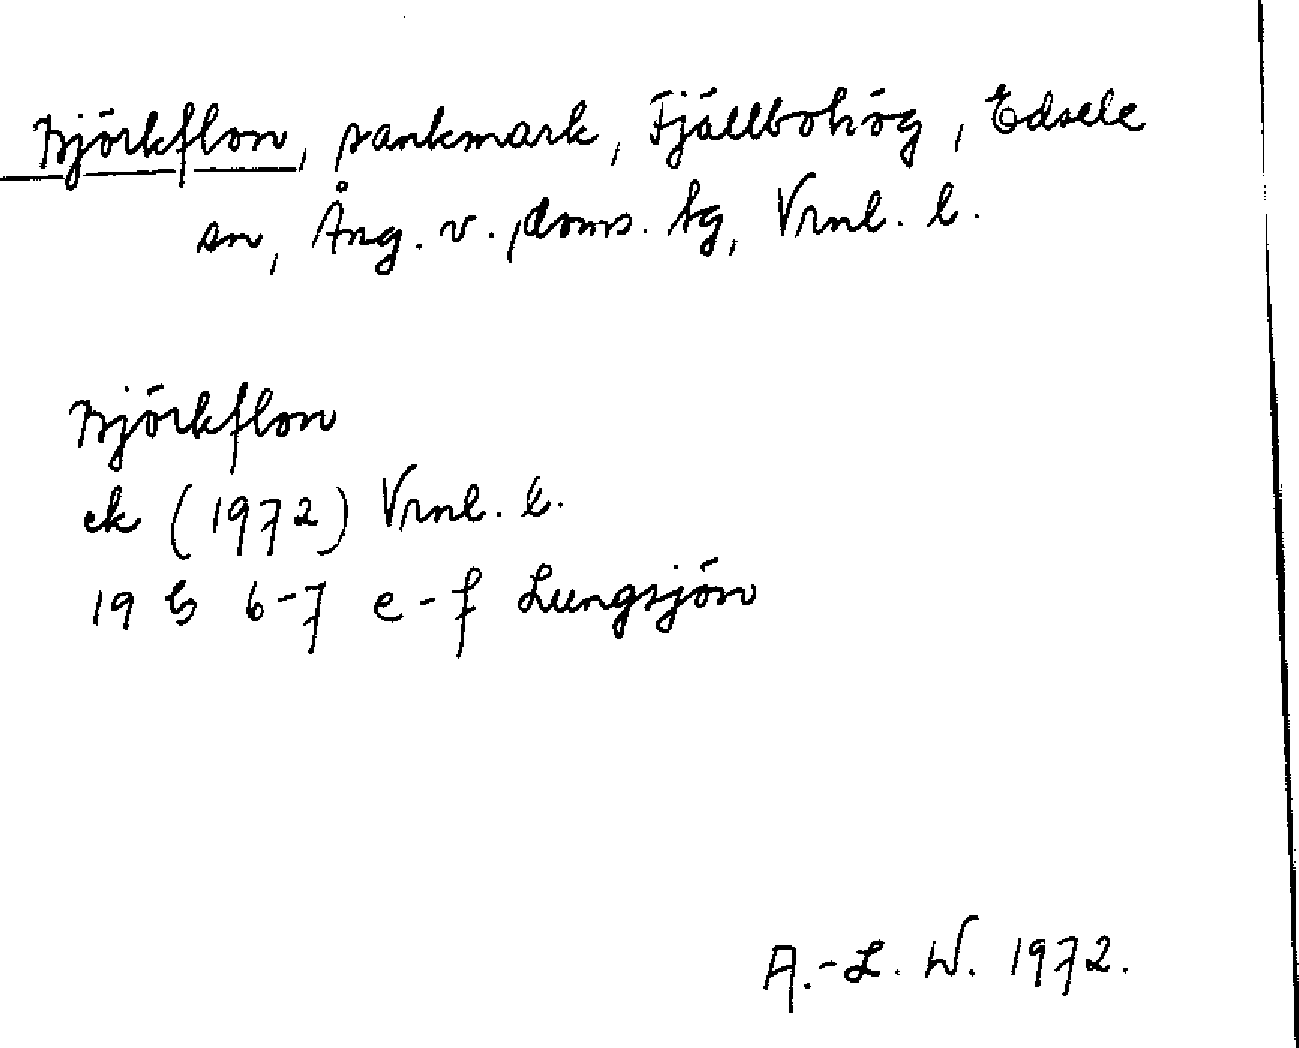 Björkflon, sankmark, Fjällbohög, Edsele
sn, Ång. v. doms. tg, Vrnl. l.
Björkflon
ek (1972) Vrnl. l.
19 G 6-7 e-f Lungsjön
A.-L. W. 1972.